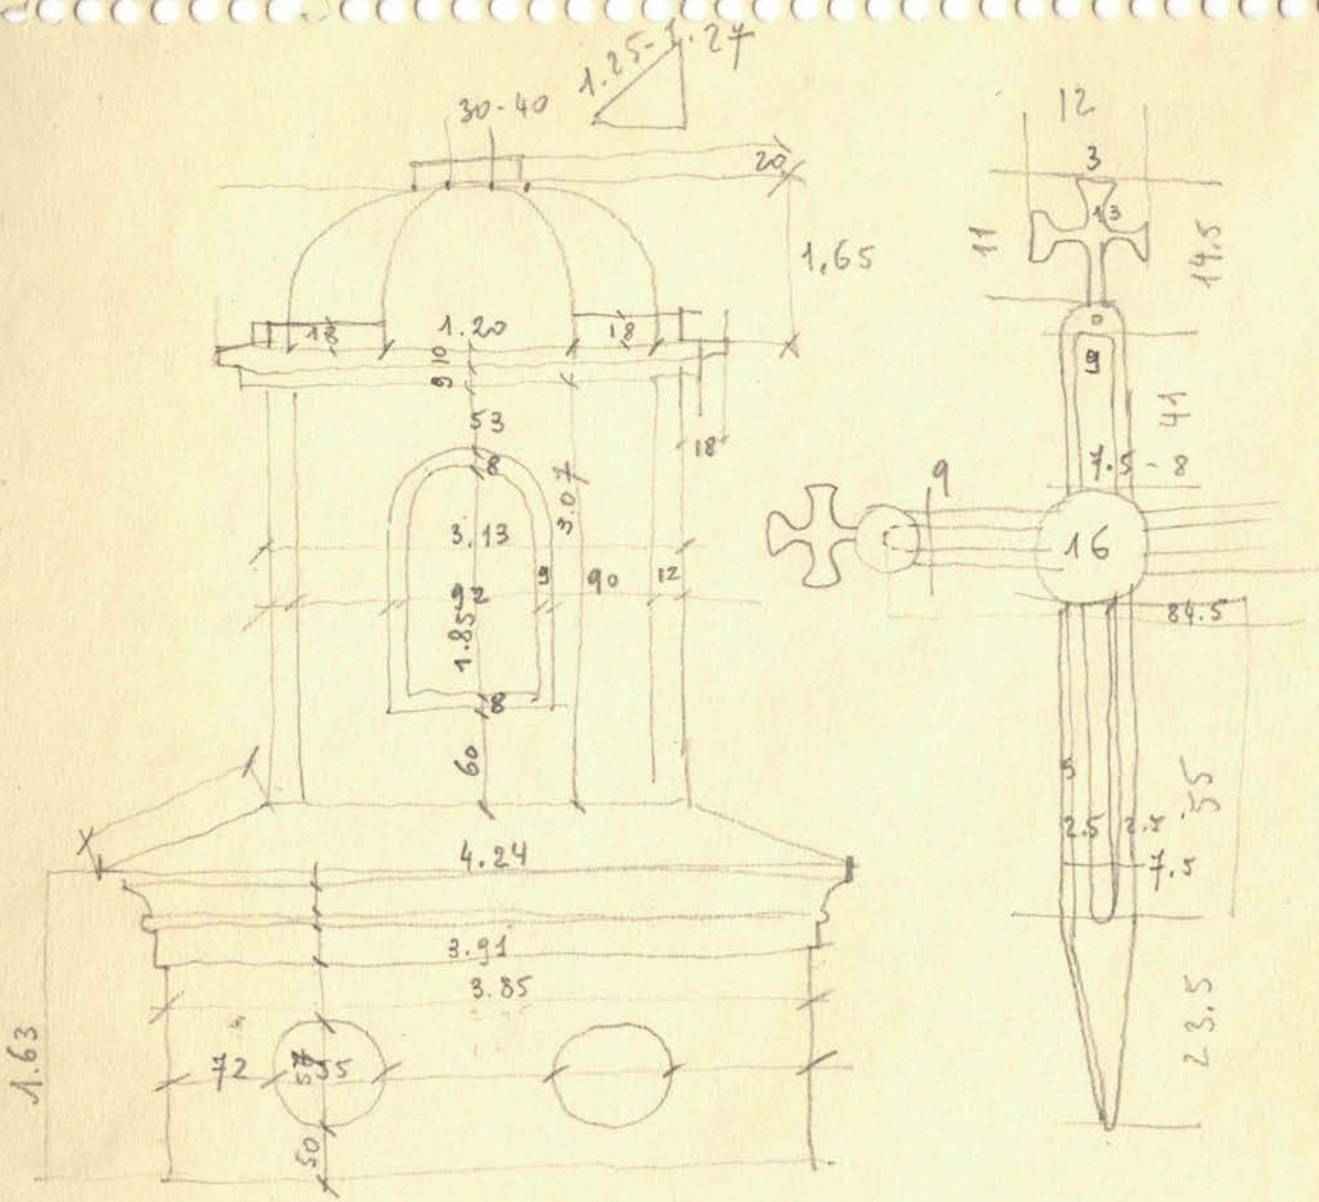 1.25-1.27
30-40
20
1,65
18
1.20
18
10
9
53
8
18
3.07
3.13
9
90
12
92
1.85
8
60
4.24
3.91
3.85
1.63
72
57
55
50
12
3
13
11
14.5
9
41
7.5 - 8
9
16
84.5
5
2.5
55
7.5
23.5